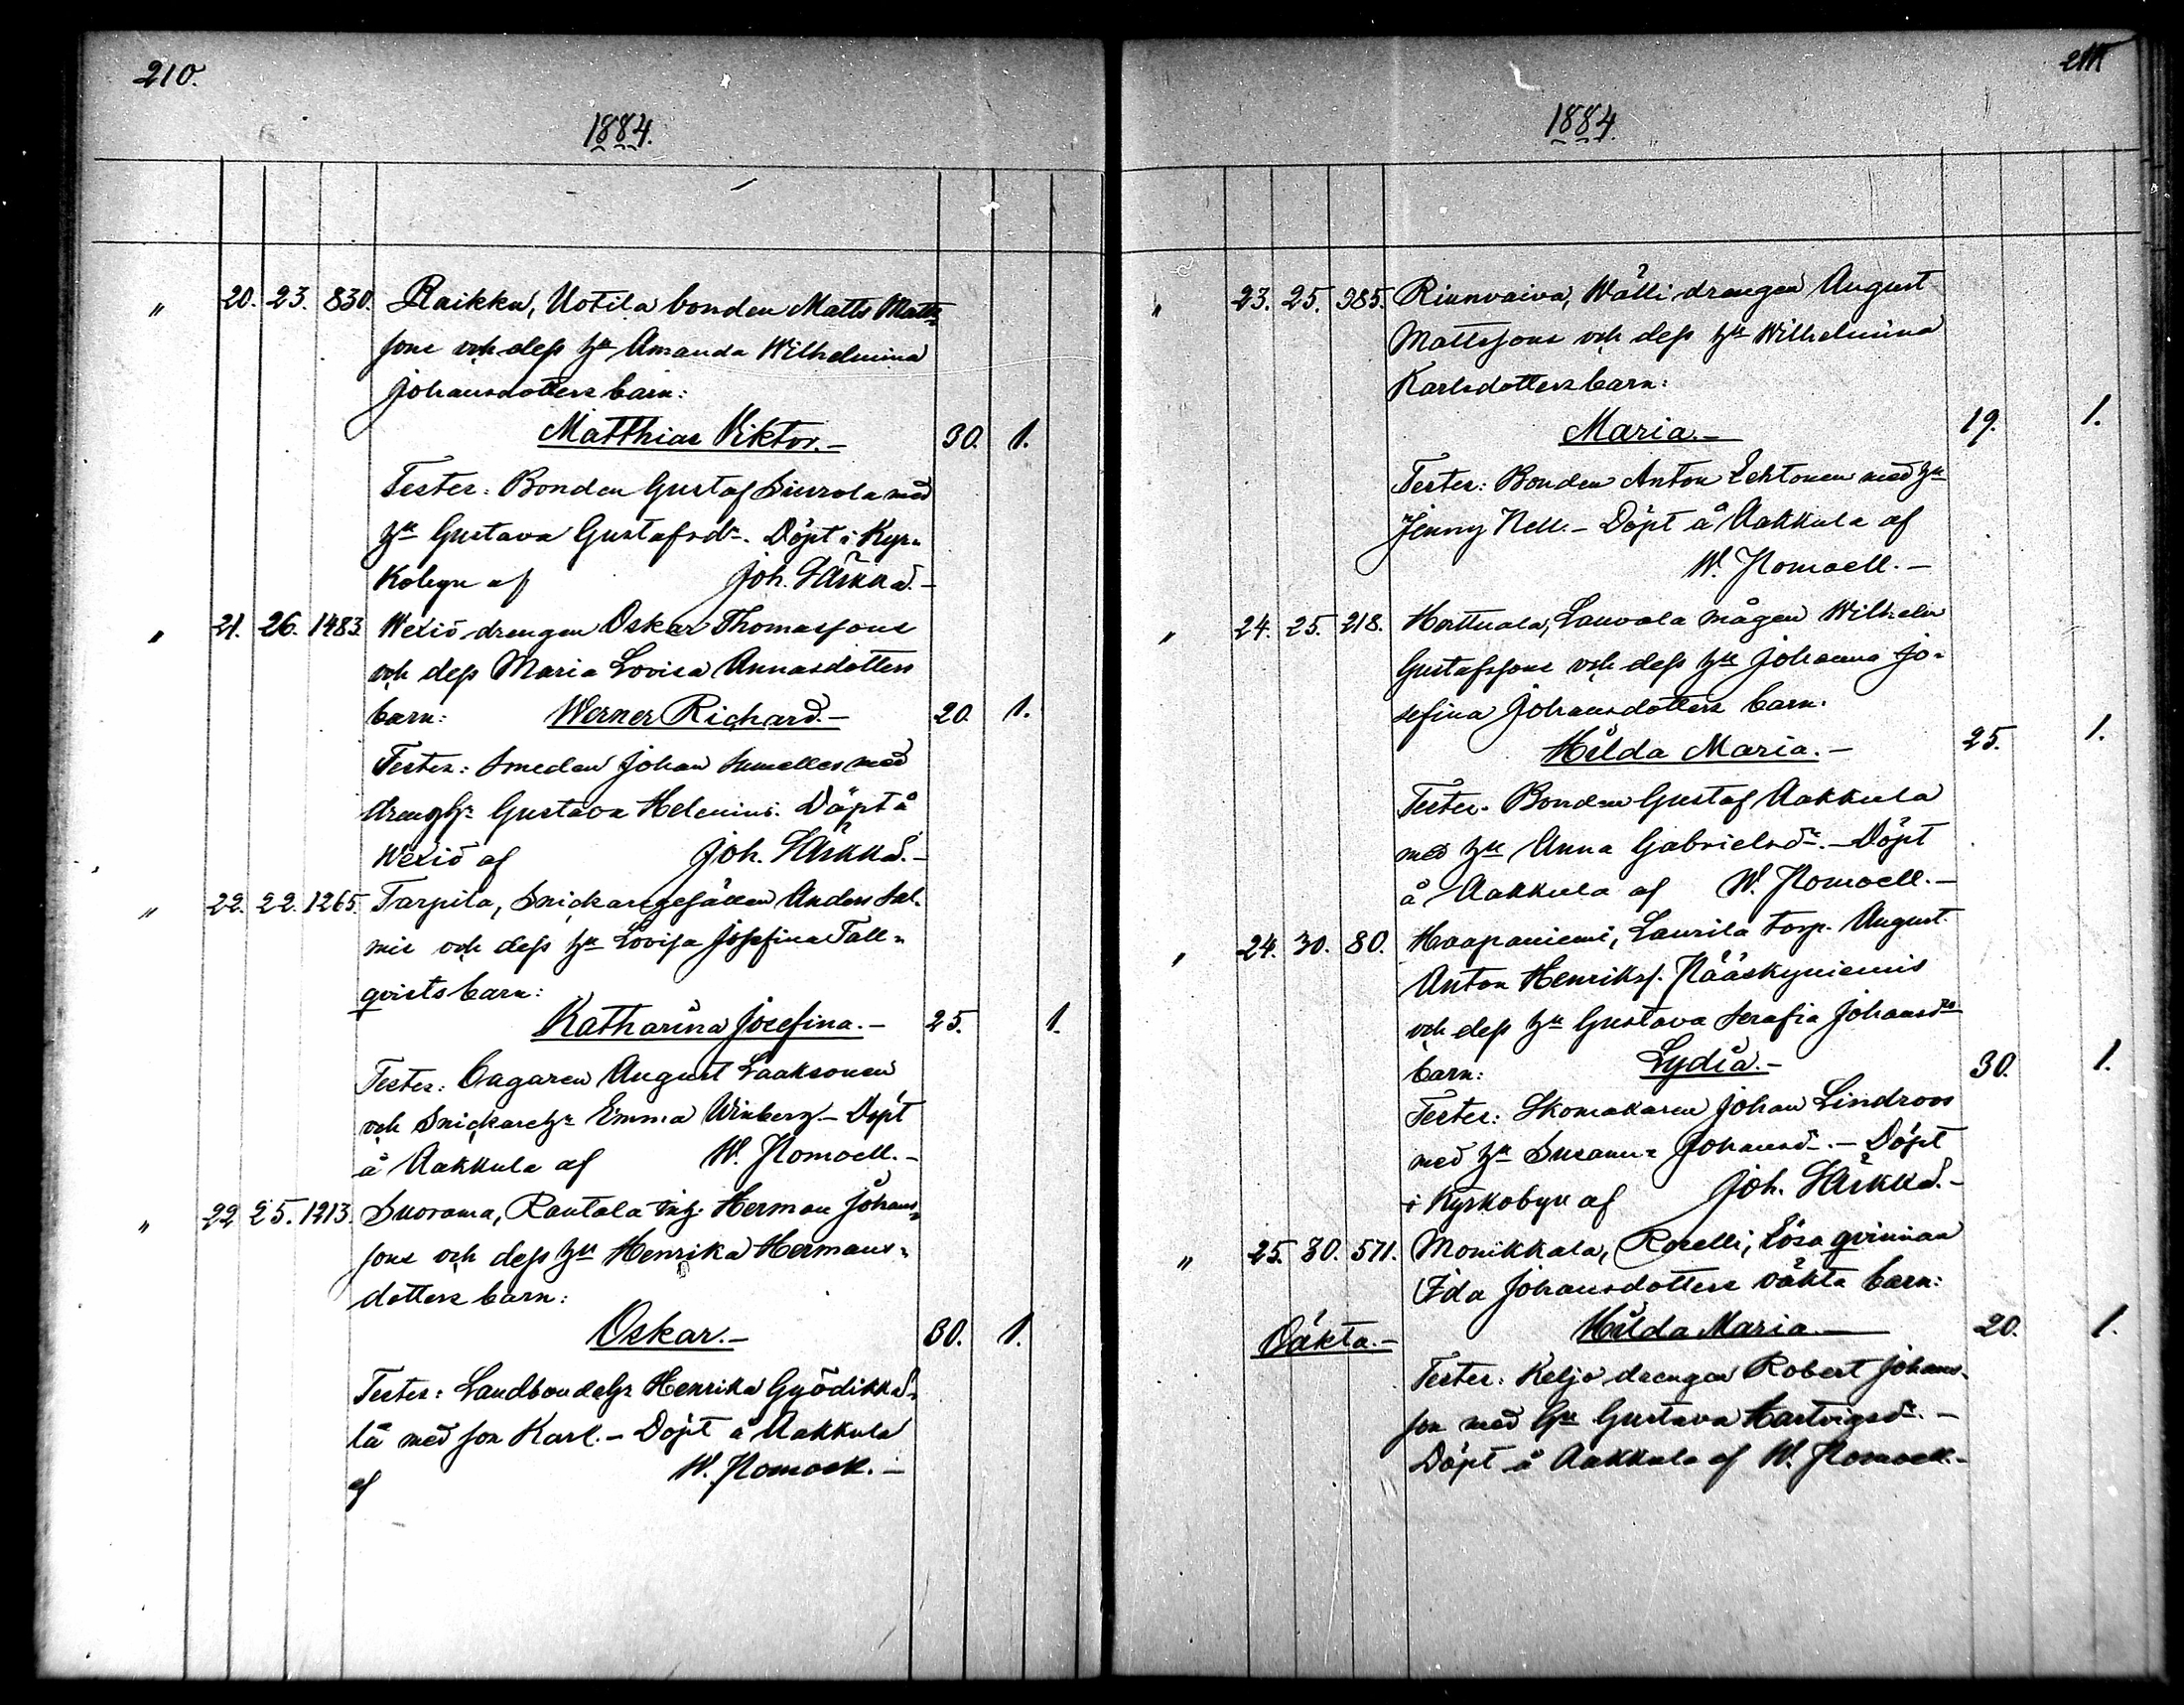 210.
1884.
" 20. 23. 830. Raikku, Uotila bonden Matts Matts-
sons och dess hu Amanda Wilhelmina
Johansdotters barn:
Matthias Viktor.- 30. 1.
Testes: Bonden Gustaf Sierola med
hu Gustava Gustafsdr. Döpt i Kyr-
kobyn af Joh. Särkkä.-
" 21. 26. 1483. Wexiö drengen Oskar Thomassons
och dess Maria Lovisa Annasdotters
barn: Werner Richard.- 20. 1.
Testes: Smeden Johan med
drengh: Gustava Helenius. Döpt å
Wexiö af Joh. Särkkä.-
" 22. 22. 1265. Tarpila, Snickaregesällen Anders Sal-
mis och dess hu Lovisa Josefina Tall-
qvists barn:
Katharina Josefina.- 25. 1.
Testes: Bagaren August Laaksonen
och Snickareh: Emma Winberg.- Döpt
å Aakkula af W. Nomoell.-
" 22 25. 1213. Suorama, Rautala Herman Johans-
sons och dess hu Henrika Hermans-
dotters barn:
Oskar.- 30. 1.
Testes: Landbondeh: Henrika Gyödikkä-
lä med son Karl.- Döpt å Aakkula
af W. Nomoell.-
211
1884.
" 23. 25. 985. Riunvaiva, Wälli drengen August
Mattssons och dess hu Wilhelmina
Karlsdotters barn:
Maria.- 19. 1.
Testes: Bonden Anton Lehtonen med hu
Jenny Nell.- Döpt å Aakkula af
W. Nomoell.-
" 24. 25. 218. Herttuala, Lauvola mågen Wilhelm
Gustafssons och dess hu Johanna Jo-
sefina Johansdotters barn.
Hilda Maria.- 25. 1.
Testes. Bonden Gustaf Aakkula
med hu Anna Gabrielsdr.- Döpt
å Aakkula af W. Nomoell.-
" 24. 30. 80. Haapaniemi, Laurila torp. August
Anton Henrikss. Pääskyniemis
och dess hu Gustava Serafia Johansdrs
barn: Lydia.- 30. 1.
Testes: Skomakaren Johan Lindroos
med hu Susanna Johansdr.- Döpt
i Kyrkobyn af Joh. Särkkä.-
" 25. 30. 571. Monikkala, Roselli, Lösa qvinnan
Ida Johansdotters oäkta barn:
Oäkta.- Hilda Maria.- 20. 1.
Testes: Keljo drengen Robert Johans-
son med hu Gustava Hartvigsdr.-
Döpt å Aakkula af W. Nomoell.-